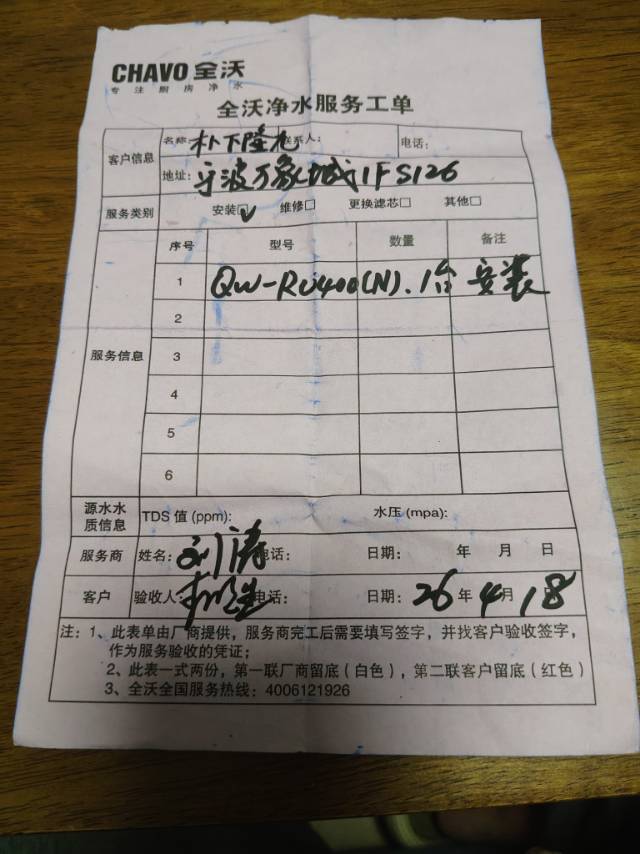 CHAVO 全沃
专注厨房净水
全沃净水服务工单
客户信息 名称: 朴下隆 联系人: 电话:
地址: 宁波万象城1F S126
服务类别 安装☑ 维修□ 更换滤芯□ 其他□
服务信息 序号 型号 数量 备注
1 QW-RU400(N). 1台 安装
2
3
4
5
6
源水水质信息 TDS 值 (ppm): 水压 (mpa):
服务商 姓名: 刘涛 电话: 日期: 年 月 日
客户 验收人: 电话: 日期: 26年4月18
注: 1、此表单由厂商提供，服务商完工后需要填写签字，并找客户验收签字，
作为服务验收的凭证；
2、此表一式两份，第一联厂商留底（白色），第二联客户留底（红色）
3、全沃全国服务热线：4006121926